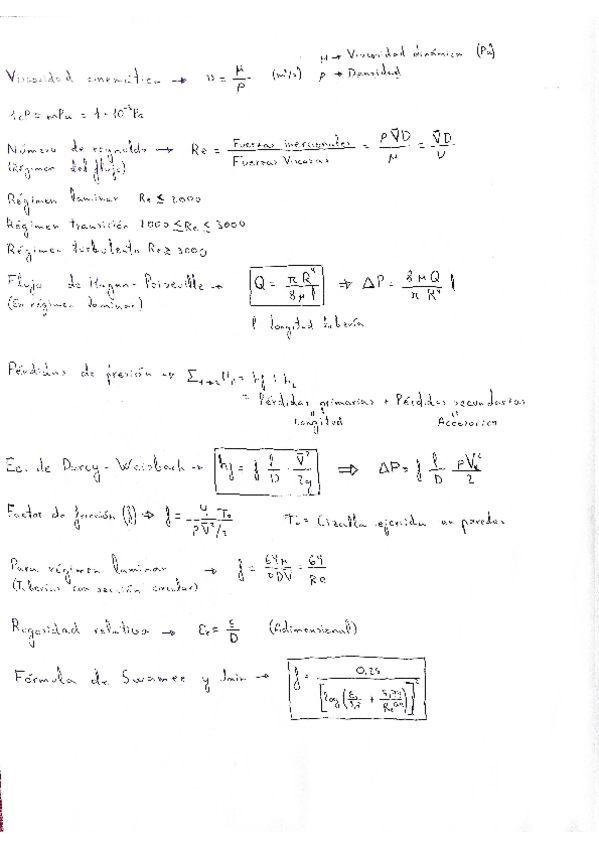 μ → Viscosidad dinámica (Pa)
Viscosidad cinemática → ν = μ/ρ (m²/s) ρ → Densidad
1cP = mPa = 1·10⁻³Pa
Número de reynolds → Re = Fuerzas inerciales / Fuerzas Viscosas = ρV̄D/μ = V̄D/ν
(Régimen del flujo)
Régimen laminar Re ≤ 2000
Régimen transición 2000 ≤ Re ≤ 3000
Régimen turbulento Re ≥ 3000
Flujo de Hagen-Poiseuille → Q = πR⁴/8μl ⇒ ΔP = 8μQ/πR⁴ l
(En régimen laminar)
l longitud tubería
Pérdidas de presión → Σ₁→₂ = hf + hL
= Pérdidas primarias + Pérdidas secundarias
Longitud Accesorios
Ec. de Darcy-Weisbach → hf = f l/D · V̄²/2g ⇒ ΔP = f l/D ρV²/2
Factor de fricción (f) → f = 4/ρV̄²/2 T₀ T₀ = Cizalla ejercida en paredes
Para régimen laminar → f = 64μ/ρDV̄ = 64/Re
(Tuberías con sección circular)
Rugosidad relativa → εr = ε/D (Adimensional)
Fórmula de Swamee y Jain → f = 0,25/[log(εr/3,7 + 5,74/Re⁰·⁹)]²